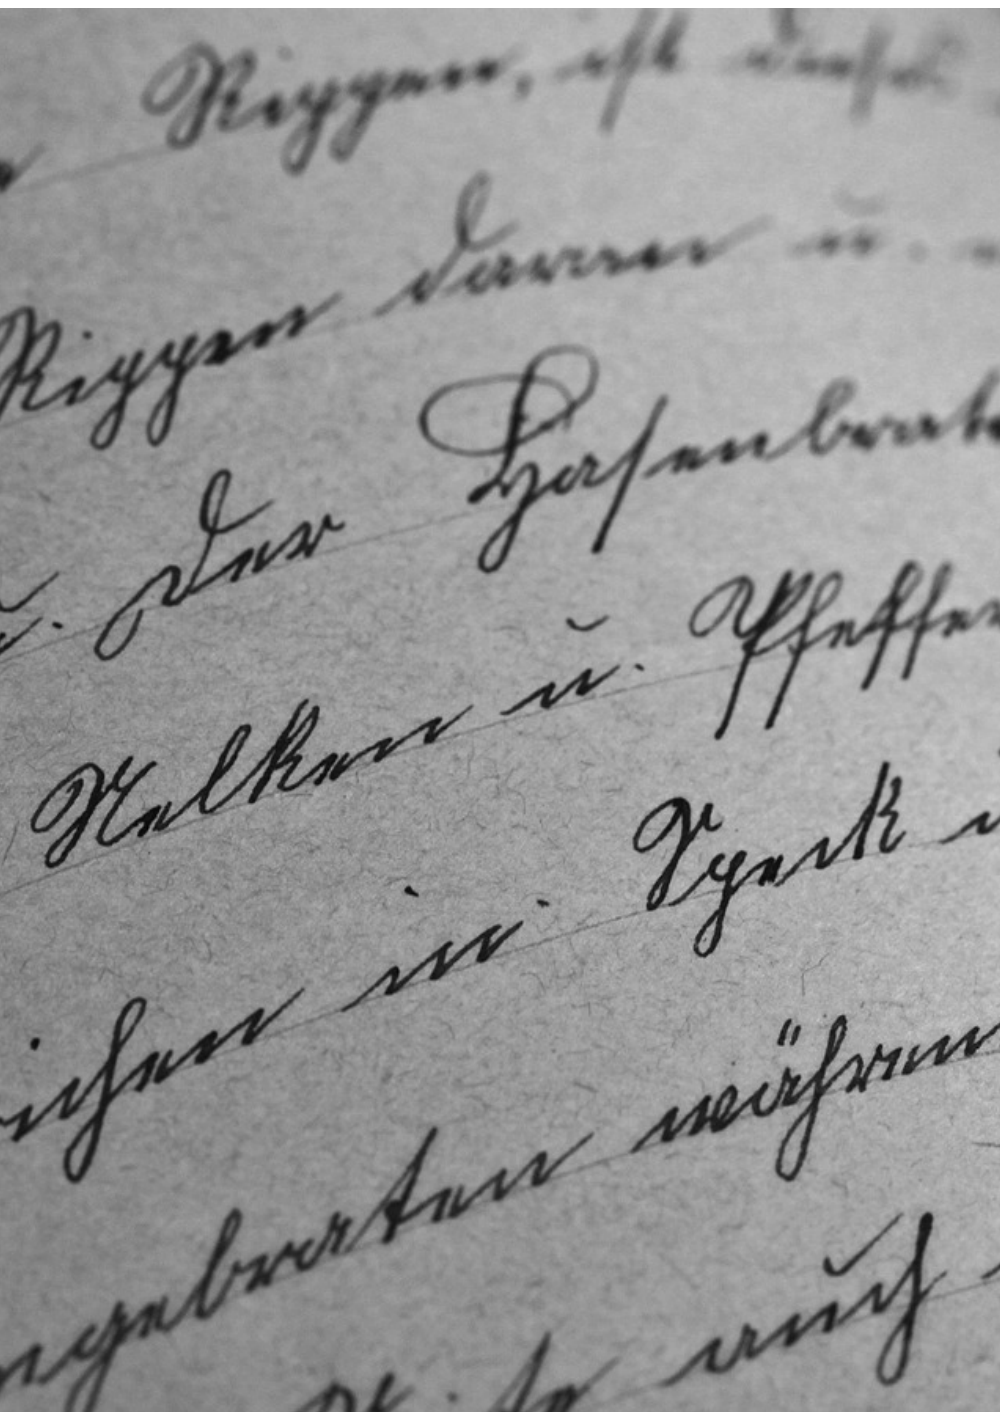 Rippen, ist dieses
Rippen daran u.
u. der Hasenbrat
Nelken u. Pfeffer
ichen in Speck
ngebraten währen
auch